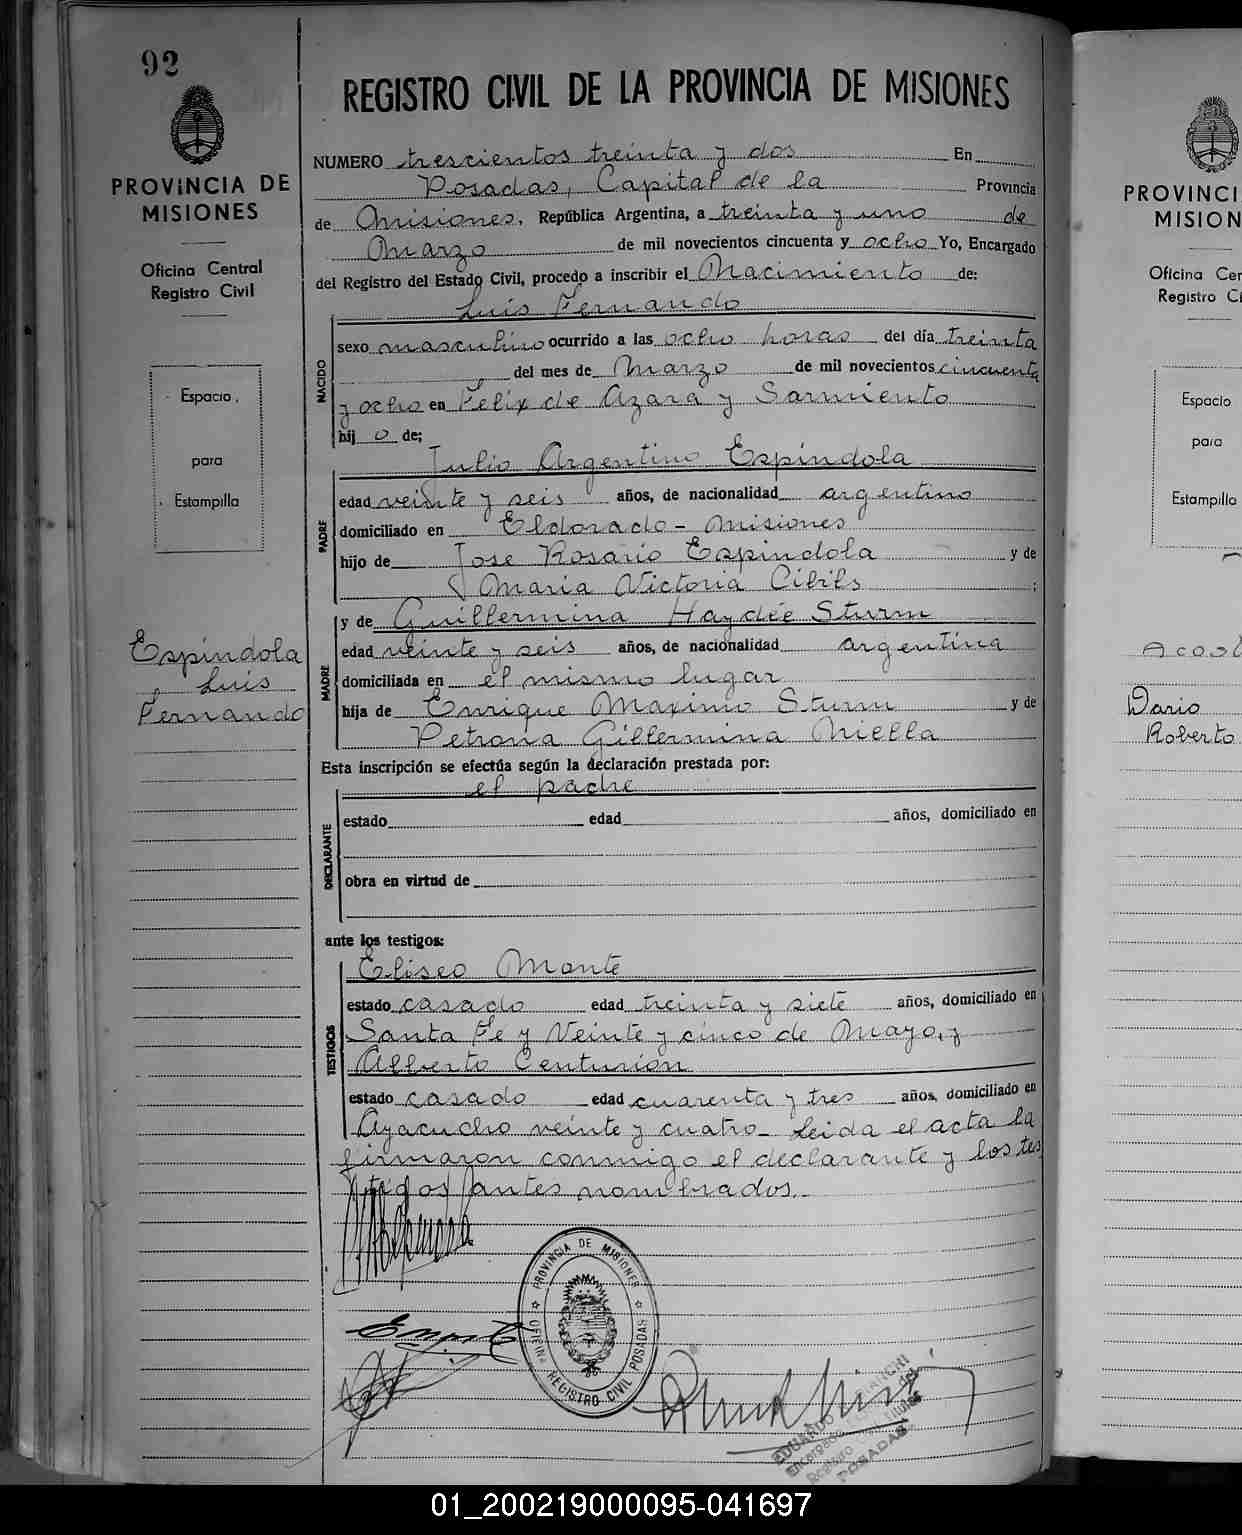 92
PROVINCIA DE
MISIONES
Oficina Central
Registro Civil
Espacio
para
Estampilla
Espíndola
Luis
Fernando
REGISTRO CIVIL DE LA PROVINCIA DE MISIONES
NUMERO trescientos treinta y dos En
Posadas, Capital de la Provincia
de Misiones, República Argentina, a treinta y uno de
Marzo de mil novecientos cincuenta y ocho Yo, Encargado
del Registro del Estado Civil, procedo a inscribir el Nacimiento de:
Luis Fernando
NACIDO
sexo masculino ocurrido a las ocho horas del día treinta
del mes de Marzo de mil novecientos cincuenta
y ocho en Félix de Azara y Sarmiento
hij o de;
Julio Argentino Espíndola
PADRE
edad veinte y seis años, de nacionalidad argentino
domiciliado en Eldorado - Misiones
hijo de José Rosario Espíndola y de
Maria Victoria Cibils ;
MADRE
y de Guillermina Haydée Sturm
edad veinte y seis años, de nacionalidad argentina
domiciliada en el mismo lugar
hija de Enrique Maximio Sturm y de
Petrona Gillermina Niella
Esta inscripción se efectúa según la declaración prestada por:
el padre
DECLARANTE
estado edad años, domiciliado en
obra en virtud de
ante los testigos:
TESTIGOS
Eliseo Monte
estado casado edad treinta y siete años, domiciliado en
Santa Fé y Veinte y cinco de Mayo, y
Alberto Centurión
estado casado edad cuarenta y tres años, domiciliado en
Ayacucho veinte y cuatro - Leida el acta la
firmaron conmigo el declarante y los tes
tigos antes nombrados.-
PROVINCIA DE MISIONES
OFICINA REGISTRO CIVIL POSADAS
EDUARDO
Encargado del
Registro
POSADAS
PROVINCI
MISION
Oficina Cen
Registro Ci
Espacio
para
Estampilla
Acost
Dario
Roberto
01_200219000095-041697